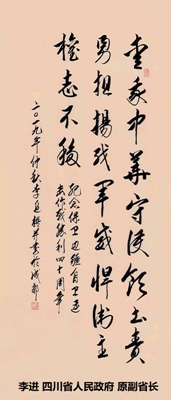 愛我中華守護領土責
勇担揚我軍威捍衛主
權志不移
紀念保卫边疆自卫还
击作战勝利四十周年
二〇一九年仲秋李進撰并書於成都
李进 四川省人民政府 原副省长